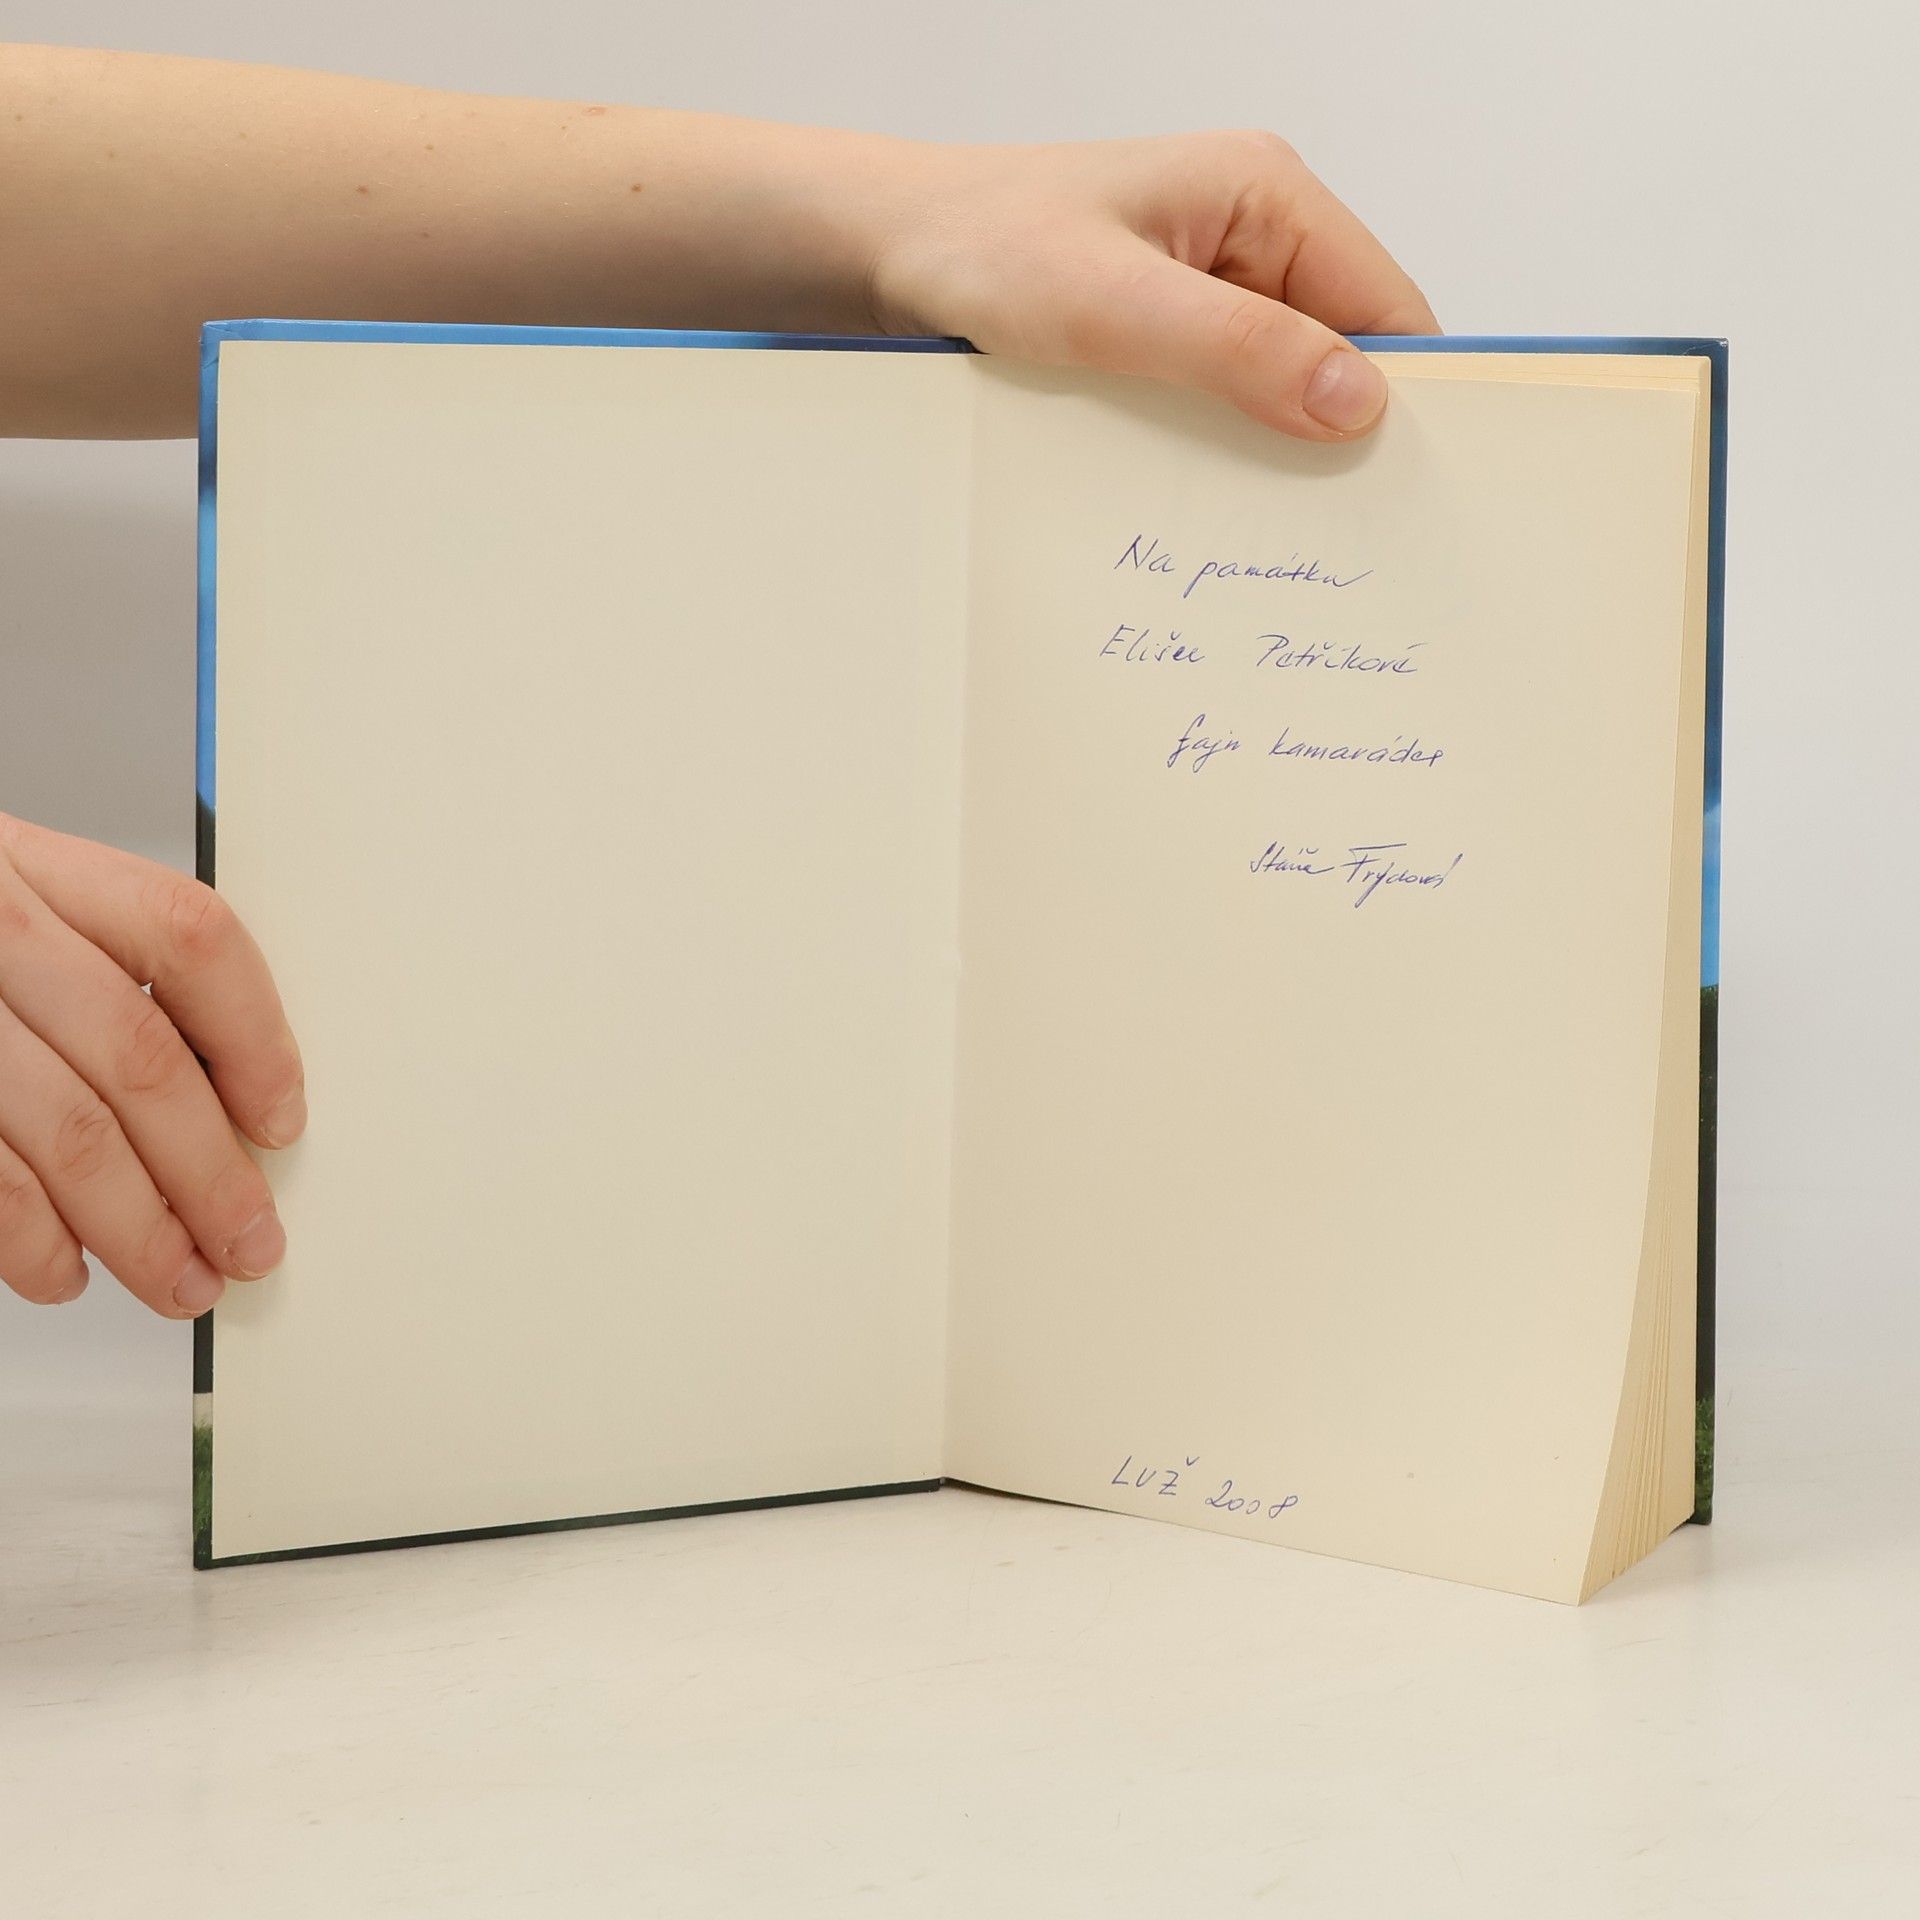 Na památku
Elišce Petříkové
fajn kamarádce
Stáňa Frýdová
LUŽ 2008